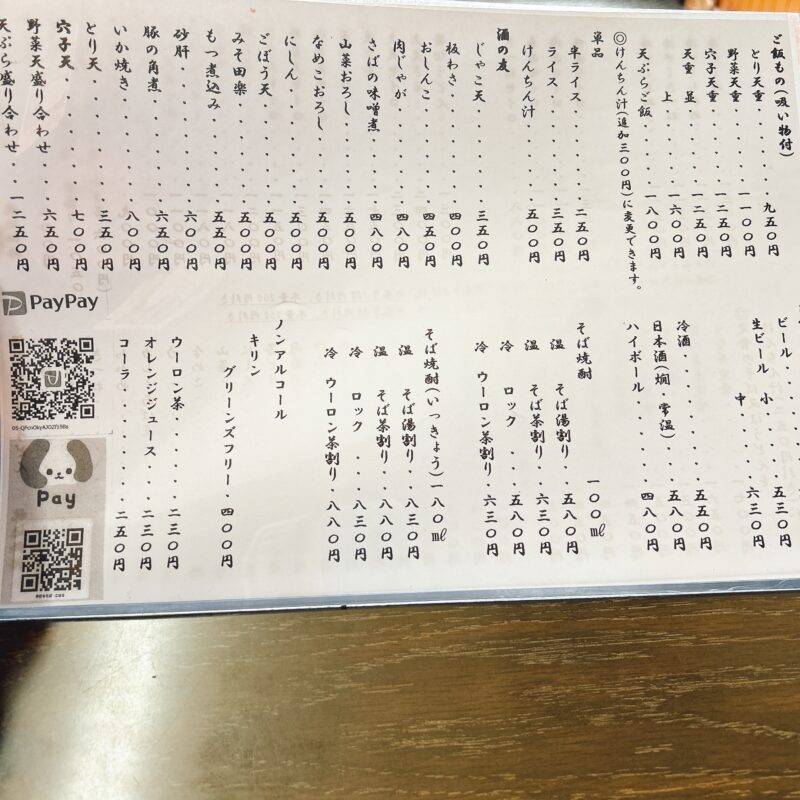 ご飯もの(吸い物付)
とり天重・・・・・・九五〇円
野菜天重・・・・・一一〇〇円
穴子天重・・・・・一二五〇円
天重 並・・・・・一二五〇円
上・・・・・一六〇〇円
天ぷらご飯・・・・・一八〇〇円
◎けんちん汁(追加三〇〇円)に変更できます。
単品
半ライス・・・・・・二五〇円
ライス・・・・・・・三五〇円
けんちん汁・・・・・五〇〇円
酒の友
じゃこ天・・・・・・三五〇円
板わさ・・・・・・・四〇〇円
おしんこ・・・・・・四五〇円
肉じゃが・・・・・・四八〇円
さばの味噌煮・・・・四八〇円
山菜おろし・・・・・五〇〇円
なめこおろし・・・・五〇〇円
にしん・・・・・・・五五〇円
ごぼう天・・・・・・五〇〇円
みそ田楽・・・・・・五五〇円
もつ煮込み・・・・・五五〇円
砂肝・・・・・・・・六〇〇円
豚の角煮・・・・・・六五〇円
いか焼き・・・・・・八〇〇円
とり天・・・・・・・三五〇円
穴子天・・・・・・・七〇〇円
野菜天盛り合わせ・・六五〇円
天ぷら盛り合わせ・・一二五〇円
ビール・・・・・・五三〇円
生ビール 小
中・・・・六三〇円
冷酒・・・・・・・五五〇円
日本酒(燗・常温)・・五八〇円
ハイボール・・・・・四八〇円
そば焼酎 一〇〇㎖
温 そば湯割り・・五八〇円
温 そば茶割り・・六三〇円
冷 ロック・・・・五八〇円
冷 ウーロン茶割り・六三〇円
そば焼酎(いっきょう)一八〇㎖
温 そば湯割り・・八三〇円
温 そば茶割り・・八八〇円
冷 ロック・・・・八三〇円
冷 ウーロン茶割り・八八〇円
ノンアルコール
キリン
グリーンズフリー・四〇〇円
ウーロン茶・・・・二三〇円
オレンジジュース・・二三〇円
コーラ・・・・・・二五〇円
PayPay
Pay